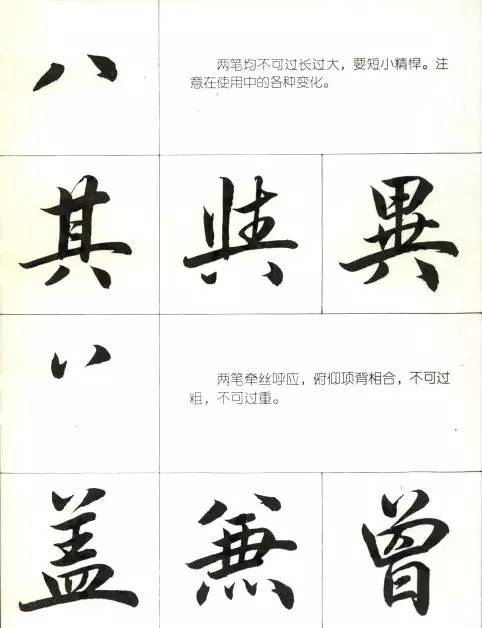 八
两笔均不可过长过大，要短小精悍。注
意在使用中的各种变化。
其 異
两笔牵丝呼应，俯仰顶背相合，不可过
粗，不可过重。
盖 兼 曾